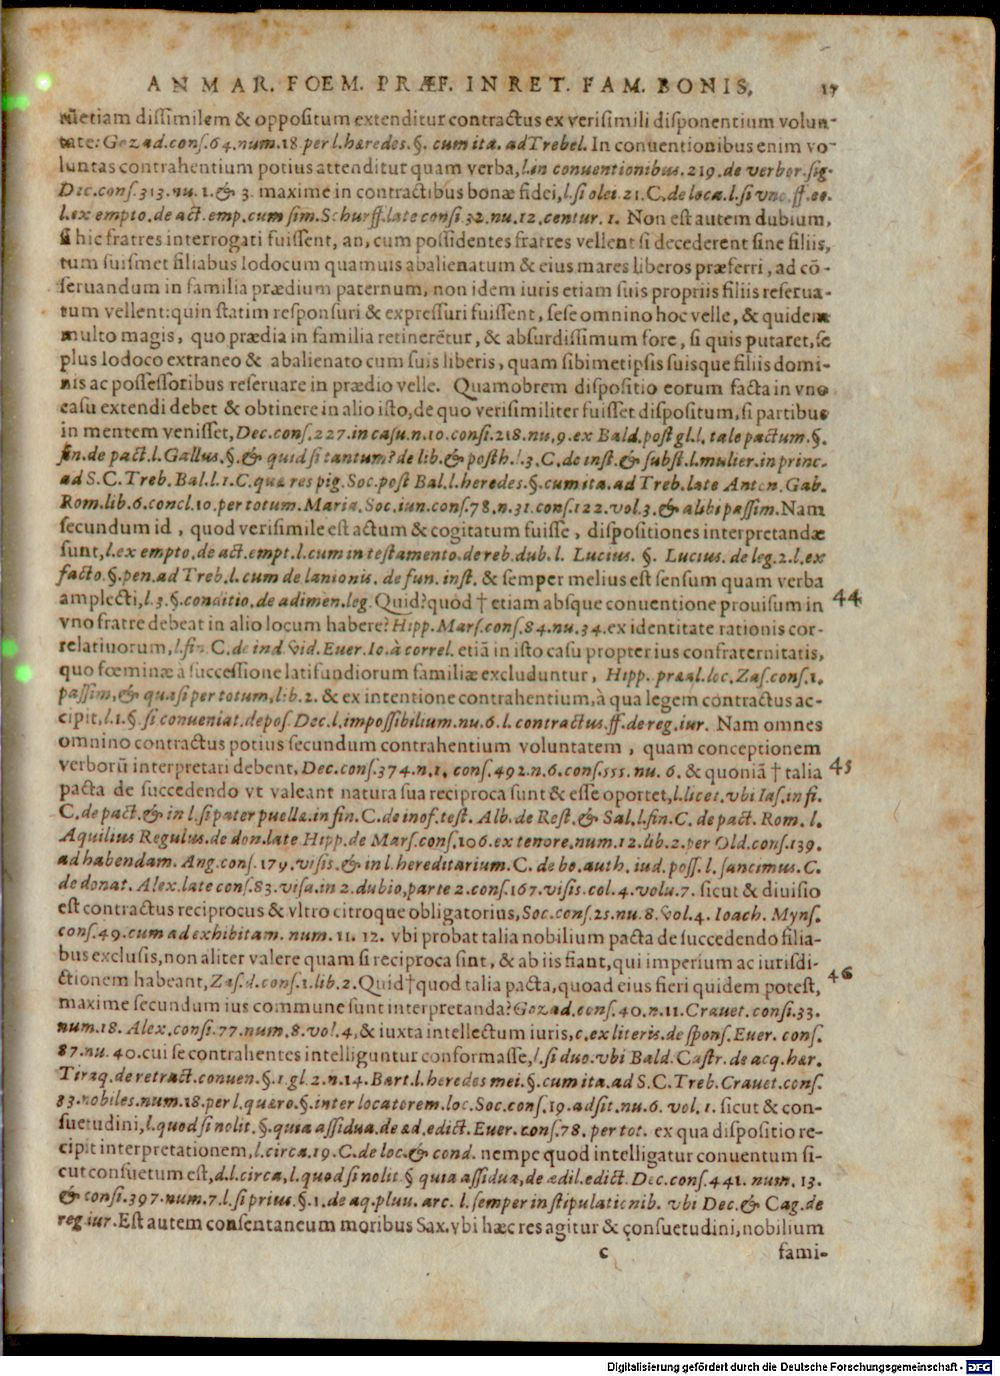 AN MAR. FOEM. PRÆF. IN RET. FAM. BONIS, 17
etiam dissimilem & oppositum extenditur contractus ex verisimili disponentium volun-
tate: Gozad. cons. 64. num. 18 per l. hæredes. §. cum ita. ad Trebel. In conuentionibus enim vo-
luntas contrahentium potius attenditur quam verba, l. in conuentionibus. 219. de verbor. sig.
Dec. cons. 313. nu. 1. & 3. maxime in contractibus bonæ fidei, l. si olei. 21. C. de loca. l. si vno. ff. eo.
l. ex empto. de act. emp. cum sim. Schurff. late consi 32. nu. 12. centur. 1. Non est autem dubium,
si hic fratres interrogati fuissent, an, cum possidentes fratres vellent si decederent sine filiis,
tum suismet filiabus Iodocum quamuis abalienatum & eius mares liberos præferri, ad cō-
seruandum in familia prædium paternum, non idem iuris etiam suis propriis filiis reserua-
tum vellent: quin statim responsuri & expressuri fuissent, sese omnino hoc velle, & quidem
multo magis, quo prædia in familia retinerētur, & absurdissimum fore, si quis putaret, se
plus Iodoco extraneo & abalienato cum suis liberis, quam sibimetipsis suisque filiis domi-
nis ac possessoribus reseruare in prædio velle. Quamobrem dispositio eorum facta in vno
casu extendi debet & obtinere in alio isto, de quo verisimiliter fuisset dispositum, si partibus
in mentem venisset, Dec. cons. 227. in casu. n. 10. consi. 218. nu. 9. ex Bald. post gl. l. tale pactum. §.
fin. de pact. l. Gallus. §. & quid si tantum? de lib. & posth. l. 3. C. de inst. & subst. l. mulier. in princ.
ad S. C. Treb. Bal. l. 1. C. quæ res pig. Soc. post Bal. l. heredes. §. cum ita. ad Treb. late Anton. Gab.
Rom. lib. 6. concl. 10. per totum. Maria. Soc. iun. cons. 78. n. 31. cons. 122. vol. 3. & alibi passim. Nam
secundum id, quod verisimile est actum & cogitatum fuisse, dispositiones interpretandæ
sunt, l. ex empto. de act. empt. l. cum in testamento. de reb. dub. l. Lucius. §. Lucius. de leg. 2. l. ex
facto. §. pen. ad Treb. l. cum de lanionis. de fun. inst. & semper melius est sensum quam verba
amplecti, l. 3. §. conditio. de adimen. leg. Quid? quod † etiam absque conuentione prouisum in 44
vno fratre debeat in alio locum habere? Hipp. Mars. cons. 84. nu. 34. ex identitate rationis cor-
relatiuorum, l. fin. C. de ind. vid. Euer. lo. à correl. etiā in isto casu propter ius confraternitatis,
quo fœminæ à successione latifundiorum familiæ excluduntur, Hipp. præal. loc. Zas. cons. 1.
passim, & quasi per totum, lib. 2. & ex intentione contrahentium, à qua legem contractus ac-
cipit, l. 1. §. si conueniat. depos. Dec. l. impossibilium. nu. 6. l. contractus. ff. de reg. iur. Nam omnes
omnino contractus potius secundum contrahentium voluntatem, quam conceptionem
verborū interpretari debent, Dec. cons. 374. n. 1. cons. 492. n. 6. cons. 555. nu. 6. & quoniā † talia 45
pacta de succedendo vt valeant natura sua reciproca sunt & esse oportet, l. licet. vbi Ias. in fi.
C. de pact. & in l. si pater puellæ. in fin. C. de inof. test. Alb. de Rest. & Sal. l. fin. C. de pact. Rom. l.
Aquilius Regulus. de don. late Hipp. de Mars. cons. 106. ex tenore. num. 12. lib. 2. per Old. cons. 139.
ad habendam. Ang. cons. 179. visis. & in l. hereditarium. C. de bo. auth. iud. poss. l. sancimus. C.
de donat. Alex. late cons. 83. visa. in 2. dubio, parte 2. cons. 167. visis. col. 4. volu. 7. sicut & diuisio
est contractus reciprocus & vltro citroque obligatorius, Soc. cons. 25. nu. 8. vol. 4. Ioach. Myns.
cons. 49. cum ad exhibitam. num. 11. 12. vbi probat talia nobilium pacta de succedendo filia-
bus exclusis, non aliter valere quam si reciproca sint, & ab iis fiant, qui imperium ac iurisdi-
ctionem habeant, Zas. d. cons. 1. lib. 2. Quid † quod talia pacta, quoad eius fieri quidem potest, 46
maxime secundum ius commune sunt interpretanda? Gozad. cons. 40. n. 11. Crauet. consi. 33.
num. 18. Alex. consi. 77. num. 8. vol. 4, & iuxta intellectum iuris, c. ex literis. de spons. Euer. cons.
87. nu. 40. cui se contrahentes intelliguntur conformasse, l. si duo. vbi Bald. Castr. de acq. hær.
Tiraq. de retract. conuen. §. 1. gl 2. n. 14. Bart. l. heredes mei. §. cum ita. ad S. C. Treb. Crauet. cons.
83. nobiles. num. 18. per l. quæro. §. inter locatorem. loc. Soc. cons. 19. adsit. nu. 6. vol. 1. sicut & con-
suetudini, l. quod si nolit. §. quia assidua. de æd. edict. Euer. cons. 78. per tot. ex qua dispositio re-
cipit interpretationem, l. circa. 19. C. de loc. & cond. nempe quod intelligatur conuentum si-
cut consuetum est, d. l. circa, l. quod si nolit § quia assidua, de ædil. edict. Dec. cons. 441. num. 13.
& consi. 397. num. 7. l. si prius. §. 1. de aq. pluu. arc. l. semper in stipulationib. vbi Dec. & Cag. de
reg. iur. Est autem consentaneum moribus Sax. vbi hæc res agitur & consuetudini, nobilium
c fami-
Digitalisierung gefördert durch die Deutsche Forschungsgemeinschaft - DFG